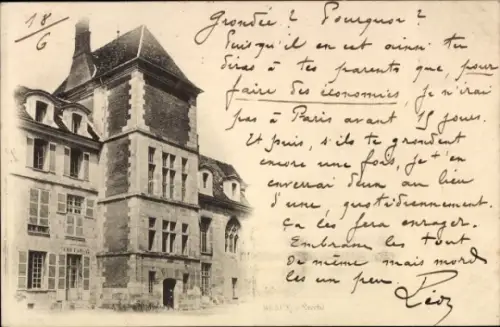 18/6
Grondée ? Pourquoi ?
Puisqu'il en est ainsi tu
diras à tes parents que, pour
faire des économies, je n'irai
pas à Paris avant 15 jours.
Et puis, s'ils te grondent
encore une fois, je t'en
enverrai deux au lieu
d'une, quotidiennement.
Ça les fera enrager.
Embrasse les tout
de même mais mords
les un peu
Léon